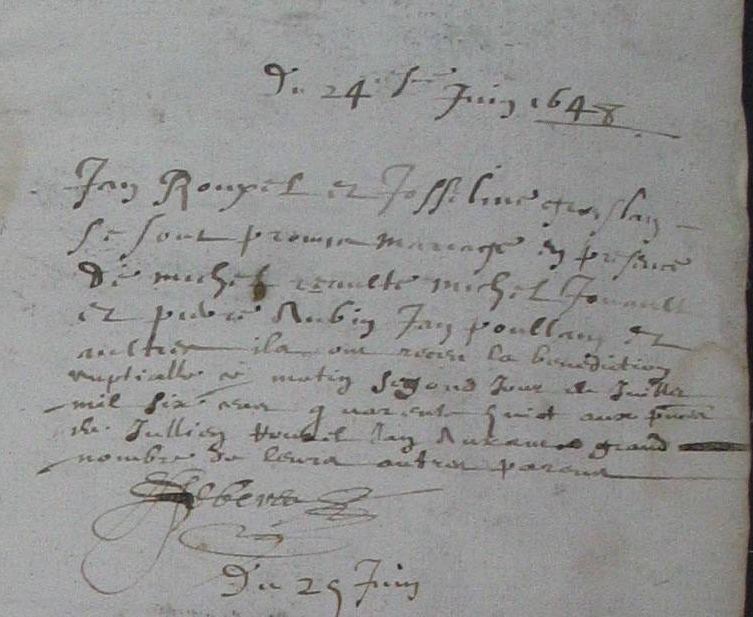 Du 24 Juin 1648
Jan Rouxel et Josseline
se sont promis mariage en presence
de michel michel Jouault
et pierre Aubin Jan poullain et
aultres ils ont receu la benediction
nuptialle ce matin segond Jour de Juillet
mil six cens quarente huict aux
de Jullien Rouxel Jan grand
nombre de leurs autres parens
Du 29 Juin